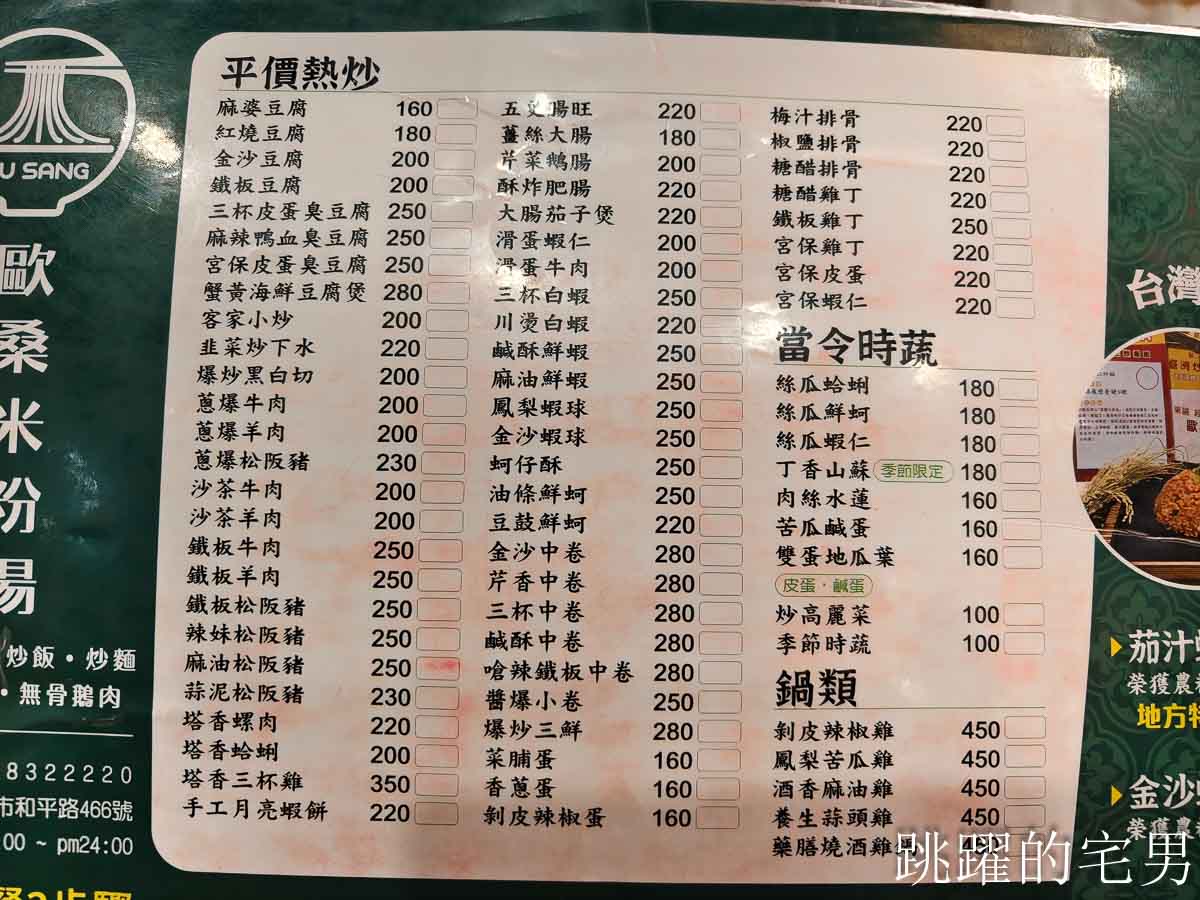 U SANG
歐桑米粉湯
炒飯・炒麵
・無骨鵝肉
8322220
市和平路466號
:00 ~ pm24:00
平價熱炒
麻婆豆腐 160
紅燒豆腐 180
金沙豆腐 200
鐵板豆腐 200
三杯皮蛋臭豆腐 250
麻辣鴨血臭豆腐 250
宮保皮蛋臭豆腐 250
蟹黃海鮮豆腐煲 280
客家小炒 200
韭菜炒下水 220
爆炒黑白切 200
蔥爆牛肉 200
蔥爆羊肉 200
蔥爆松阪豬 230
沙茶牛肉 200
沙茶羊肉 200
鐵板牛肉 250
鐵板羊肉 250
鐵板松阪豬 250
辣妹松阪豬 250
麻油松阪豬 250
蒜泥松阪豬 230
塔香螺肉 220
塔香蛤蜊 200
塔香三杯雞 350
手工月亮蝦餅 220
五更腸旺 220
薑絲大腸 180
芹菜鵝腸 200
酥炸肥腸 220
大腸茄子煲 220
滑蛋蝦仁 200
滑蛋牛肉 200
三杯白蝦 250
川燙白蝦 220
鹹酥鮮蝦 250
麻油鮮蝦 250
鳳梨蝦球 250
金沙蝦球 250
蚵仔酥 250
油條鮮蚵 250
豆鼓鮮蚵 220
金沙中卷 280
芹香中卷 280
三杯中卷 280
鹹酥中卷 280
嗆辣鐵板中卷 280
醬爆小卷 250
爆炒三鮮 280
菜脯蛋 160
香蔥蛋 160
剝皮辣椒蛋 160
梅汁排骨 220
椒鹽排骨 220
糖醋排骨 220
糖醋雞丁 220
鐵板雞丁 250
宮保雞丁 220
宮保皮蛋 220
宮保蝦仁 220
當令時蔬
絲瓜蛤蜊 180
絲瓜鮮蚵 180
絲瓜蝦仁 180
丁香山蘇 季節限定 180
肉絲水蓮 160
苦瓜鹹蛋 160
雙蛋地瓜葉 160
皮蛋・鹹蛋
炒高麗菜 100
季節時蔬 100
鍋類
剝皮辣椒雞 450
鳳梨苦瓜雞 450
酒香麻油雞 450
養生蒜頭雞 450
藥膳燒酒雞
台灣
茄汁
榮獲農
地方特
金沙
榮獲農
跳躍的宅男